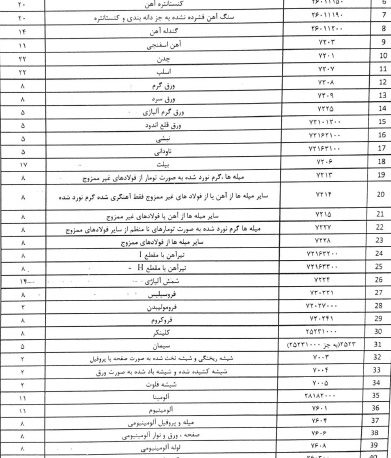 6 ۲۶۰۱۱۱۵۰ کنسانتره آهن ۲۰
7 ۲۶۰۱۱۱۹۰ سنگ آهن فشرده نشده به جز دانه بندی و کنسانتره ۲۰
8 ۲۶۰۱۱۲۰۰ گندله آهن ۱۴
9 ۷۲۰۳ آهن اسفنجی ۱۱
10 ۷۲۰۱ چدن ۲۲
11 ۷۲۰۷ اسلب ۲۲
12 ۷۲۰۸ ورق گرم ۸
13 ۷۲۰۹ ورق سرد ۸
14 ۷۲۲۵ ورق گرم آلیاژی ۵
15 ۷۲۱۰۱۲۰۰ ورق قلع اندود ۵
16 ۷۲۱۶۲۱۰۰ نبشی ۵
17 ۷۲۱۶۳۱۰۰ ناودانی ۵
18 ۷۲۰۶ بیلت ۱۷
19 ۷۲۱۳ میله ها ،گرم نورد شده به صورت تومار از فولادهای غیر ممزوج ۸
20 ۷۲۱۴ سایر میله ها از آهن یا از فولاد های غیر ممزوج فقط آهنگری شده گرم نورد شده ۸
21 ۷۲۱۵ سایر میله ها از آهن یا فولادهای غیر ممزوج ۸
22 ۷۲۲۷ میله ها گرم نورد شده به صورت تومارهای نا منظم از سایر فولادهای ممزوج ۸
23 ۷۲۲۸ سایر میله ها از فولادهای ممزوج ۸
24 ۷۲۱۶۳۲۰۰ تیرآهن با مقطع I ۸
25 ۷۲۱۶۳۳۰۰ تیرآهن با مقطع H ۸
26 ۷۲۲۴ شمش آلیاژی ۱۴
27 ۷۲۰۲۲۱ فروسیلیس ۸
28 ۷۲۰۲۷۰۰۰ فرومولیبدن ۲
29 ۷۲۰۲۴۱ فروکروم ۸
30 ۲۵۲۳۱۰۰۰ کلینکر ۸
31 ۲۵۲۳(به جز ۲۵۲۳۱۰۰۰) سیمان ۵
32 ۷۰۰۳ شیشه ریختگی و شیشه تخت شده به صورت صفحه یا پروفیل ۲
33 ۷۰۰۴ شیشه کشیده شده و شیشه باد شده به صورت ورق ۲
34 ۷۰۰۵ شیشه فلوت ۲
35 ۲۸۱۸۲۰۰۰ آلومینا ۱۱
36 ۷۶۰۱ آلومینیوم ۱۱
37 ۷۶۰۴ میله و پروفیل آلومینیومی ۸
38 ۷۶۰۶ صفحه ، ورق و نوار آلومینیومی ۸
39 ۷۶۰۸ لوله آلومینیومی ۸